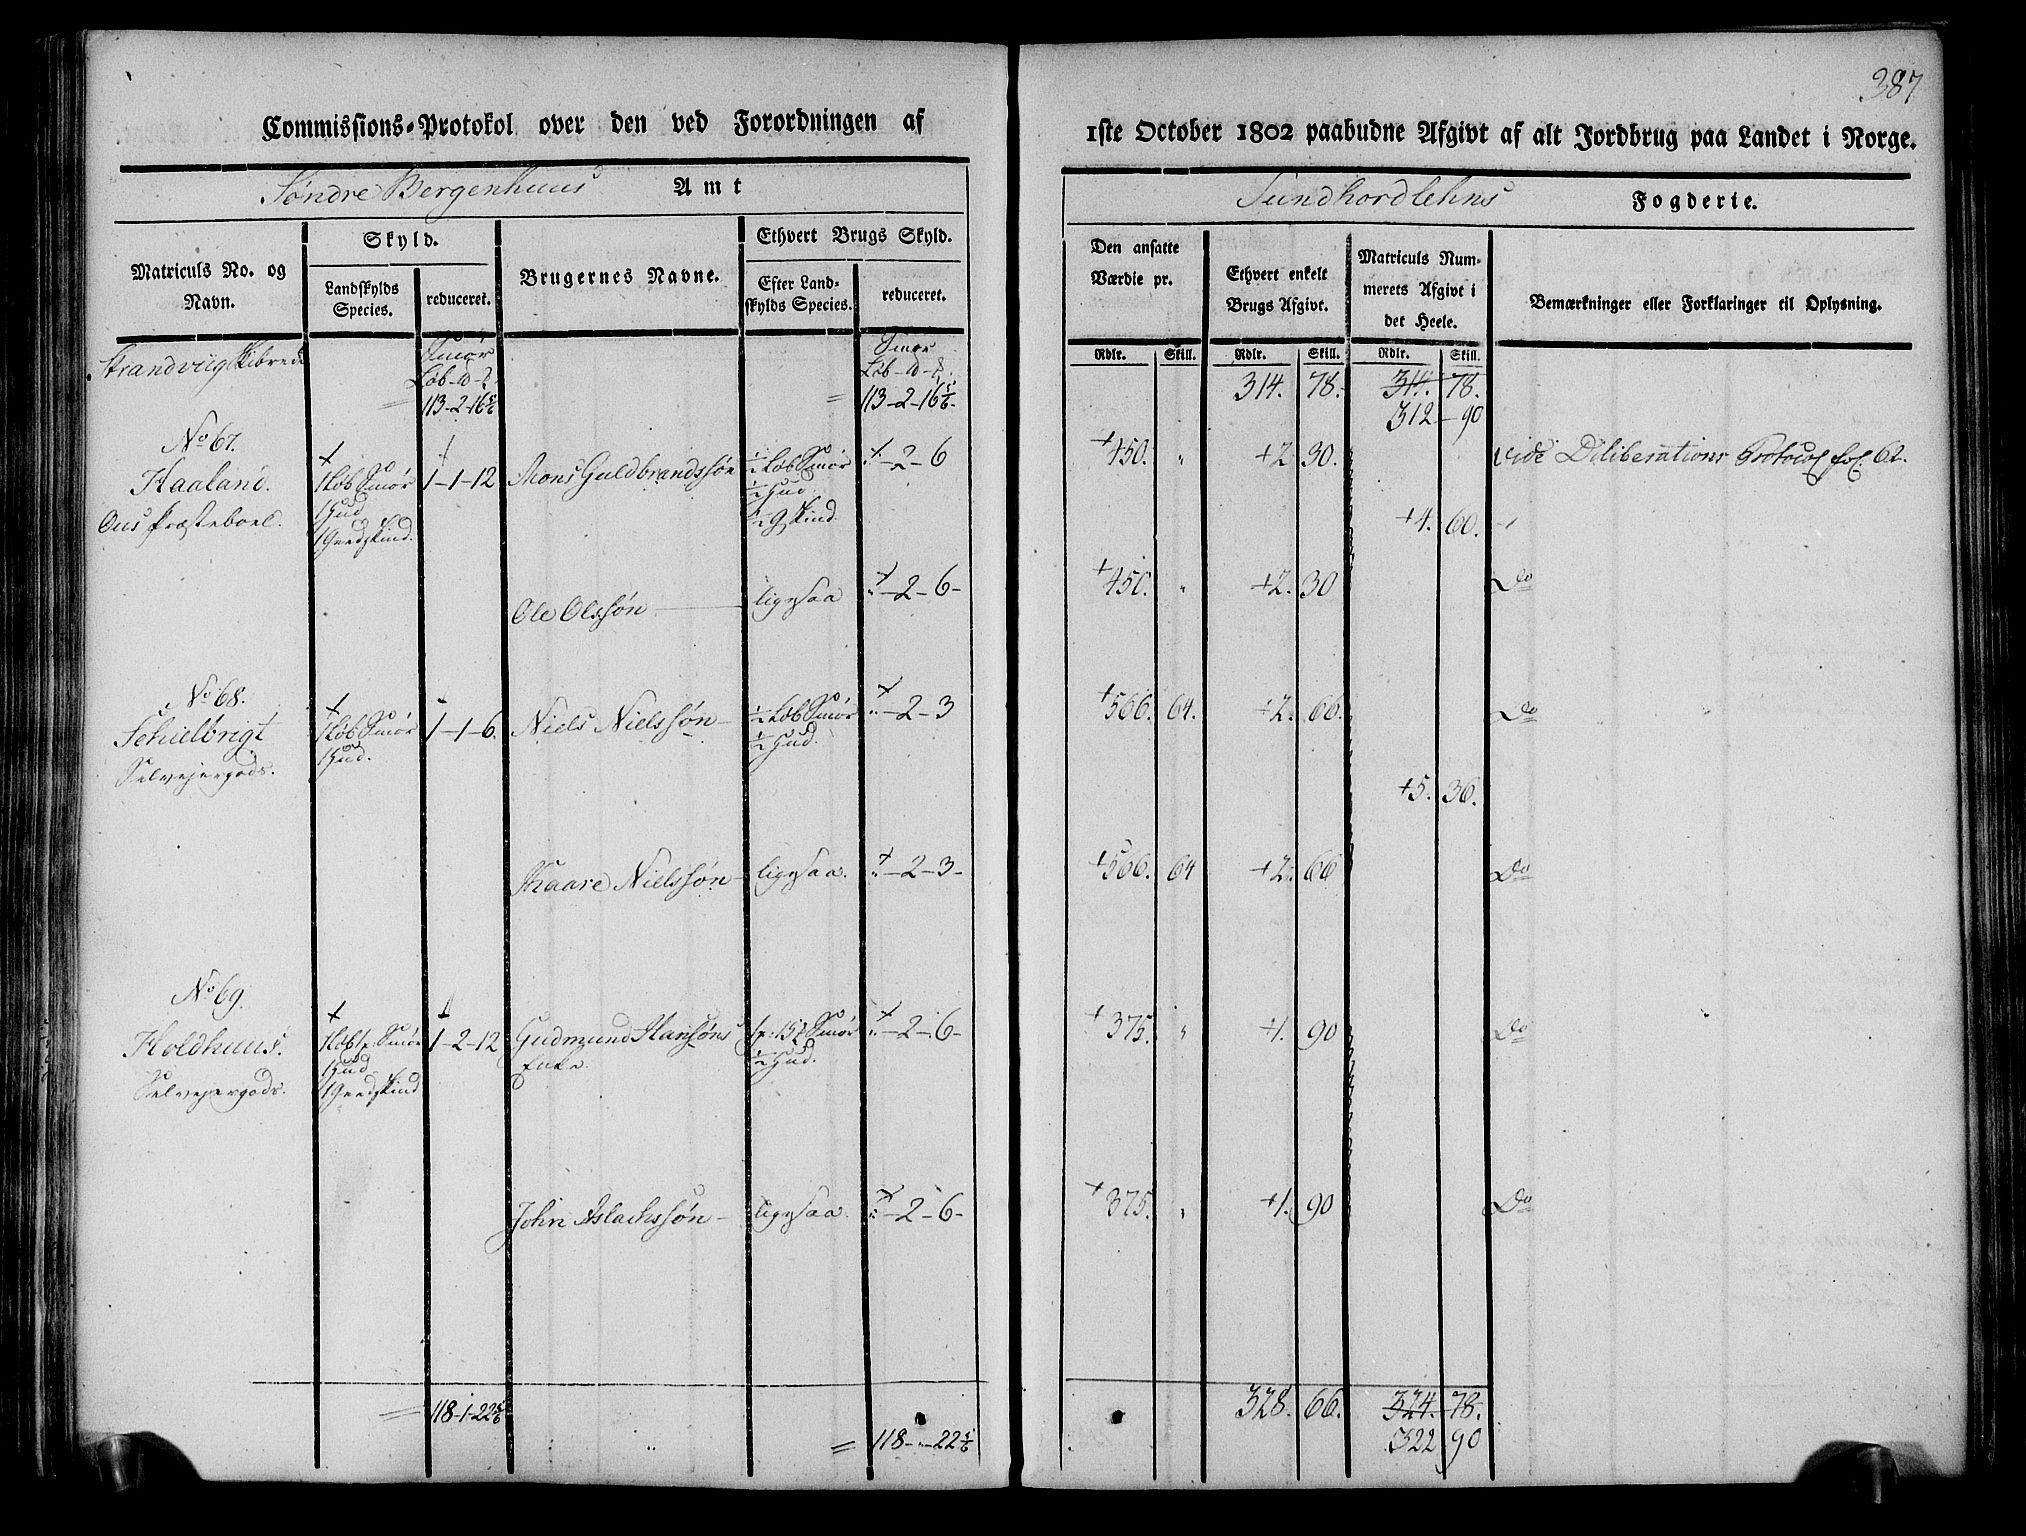 387
Commissions-Protokol over den ved Forordningen af
1ste October 1802 paabudne Afgivt af alt Jordbrug paa Landet i Norge.
Søndre Bergenhuus Amt
Sundhordlehns Fogderie.
Matriculs No. og Navn.
Skyld.
Landskylds Species.
reduceret.
Brugernes Navne.
Ethvert Brugs Skyld.
Efter Landskylds Species.
reduceret.
Den ansatte Værdie pr.
Ethvert enkelt Brugs Afgivt.
Matriculs Nummerets Afgivt i det Heele.
Bemærkninger eller Forklaringer til Oplysning.
Rdlr. Skill. Rdlr. Skill. Rdlr. Skill.
Strandviig Skibrede
Smør Smør
113-2-16 5/6 = 113-2-16 5/6 314. 78. 314. 78.
312-90
No 67.
Haaland. 1 Løb Smør 1-1-12 Mons Guldbrandssøn 1/2 Løb Smør "-2-6 +450. " +2 30. vide Deliberations Protocol fol. 62.
Ous Præsteboel. 1 Hud 1/2 Hud
1 Geedskind. 1/2 G Skind. +4. 60.
Ole Olssøn ligesaa "-2-6- +450. " +2. 30 Do
No 68.
Schielbrigt 1 Løb Smør 1-1-6. Niels Nielssøn 1/2 Løb Smør "-2-3 +566. 64. +2. 66. Do
Selvejergods. 1 Hud. 1/2 Hud.
+5. 36.
Haare Nielssøn ligesaa. "-2-3- +566. 64 +2. 66 Do
No 69.
Holdhuus. 1 Løb 1 p. Smør 1-2-12 Gudmund Hansøns 1 p: 15 Smør "-2-6- +375. " +1. 90 Do
Selvejergods. 1 Hud Enke. 1/2 Hud.
1 Geedskind
John Aslachssøn ligesaa. "-2-6- +375. " +1. 90 Do
= 118-1-22 5/6 328. 66. 324. 78.
" = 118-"-22 5/6 322 90